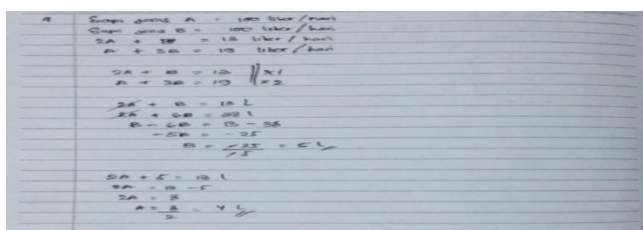 Sapi jenis A = 100 liter/hari
Sapi jenis B = 100 liter/hari
2A + B = 13 liter/hari
A + 3B = 19 liter/hari
2A + B = 13 || x1
A + 3B = 19 || x2
2A + B = 13 L
2A + 6B = 38 L
B - 6B = 13 - 38
-5B = -25
B = -25/-5 = 5 L
2A + 5 = 13 L
2A = 13 - 5
2A = 8
A = 8/2 = 4 L